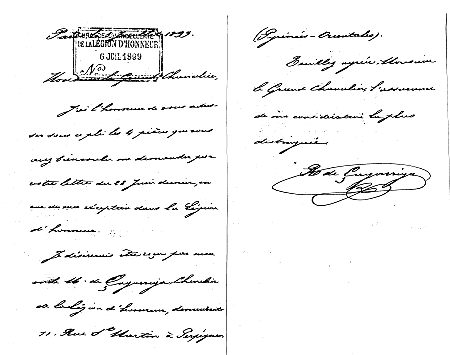 Juillet 1899
GRANDE CHANCELLERIE
DE LA LÉGION D'HONNEUR
6 JUIL 1899
Nos
Monsieur le Grand Chancelier,
J'ai l'honneur de vous adres-
ser sous ce pli les 4 pièces que vous
avez bien voulu me demander par
votre lettre du 28 Juin dernier, en
vue de ma réception dans la Légion
d'honneur.
Je désirerais être reçu par mon
oncle M. de Çagarriga Chevalier
de la Légion d'honneur, demeurant
71. Rue St Martin à Perpignan
(Pyrénées-Orientales).
Veuillez agréer Monsieur
le Grand Chancelier l'assurance
de ma considération la plus
distinguée.
de Çagarriga